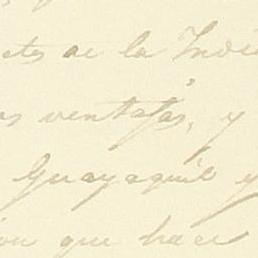 de la India
ventajas, y
Guayaquil y
que hace